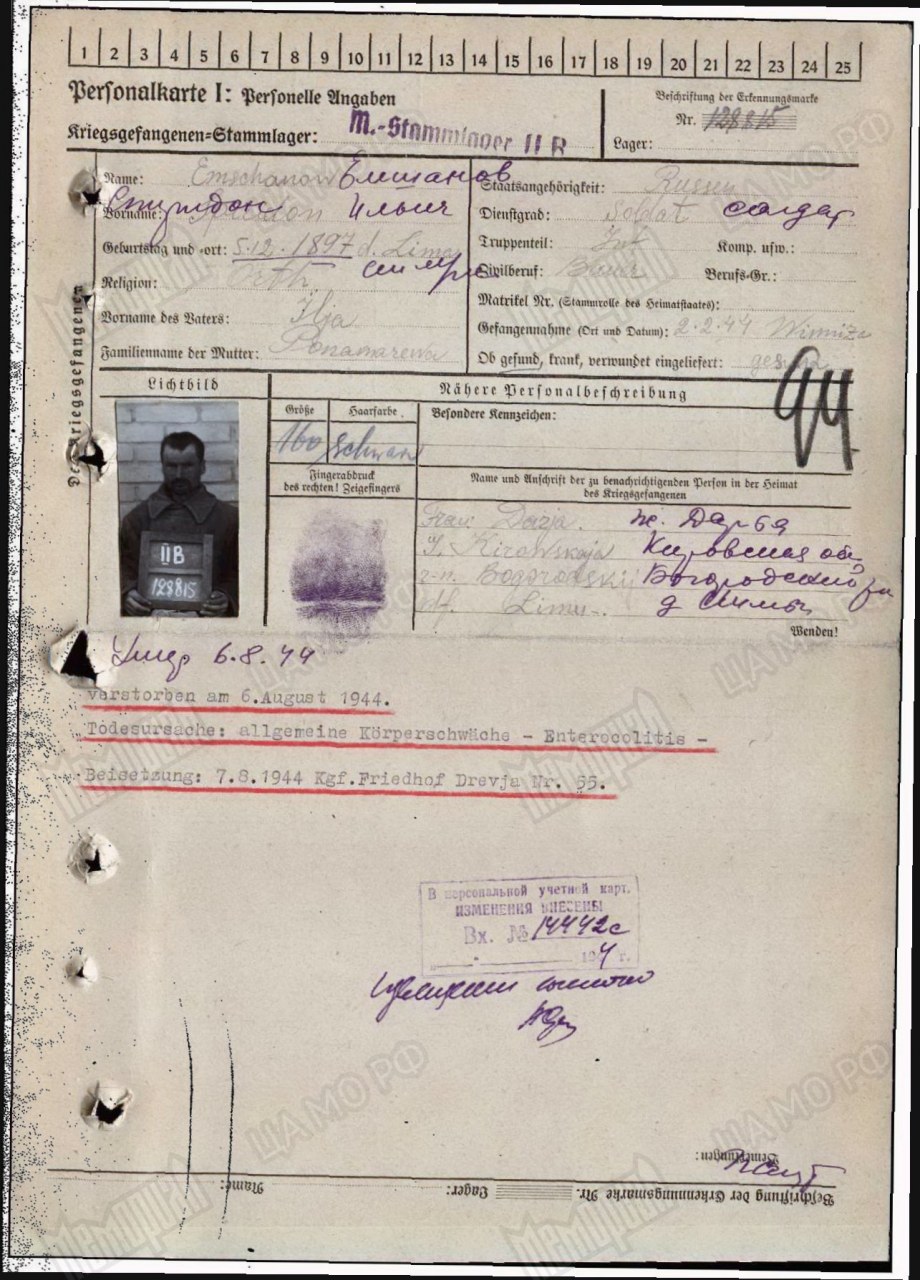 1 2 3 4 5 6 7 8 9 10 11 12 13 14 15 16 17 18 19 20 21 22 23 24 25
Personalkarte I: Personelle Angaben
Kriegsgefangenen=Stammlager: M.-Stammlager II B
Beschriftung der Erkennungsmarke
Nr. 128815
Lager:
Des Kriegsgefangenen
Name: Emschanow Емшанов
Vorname: Spiridon Спиридон Ильич
Geburtstag und =ort: 5.12.1897 d. Lima
Religion: Orth.
Vorname des Vaters: Ilja
Familienname der Mutter: Ponamarewa
Staatsangehörigkeit: Russe
Dienstgrad: Soldat солдат
Truppenteil: Inf Komp. usw.:
Zivilberuf: Bauer Berufs=Gr.:
Matrikel Nr. (Stammrolle des Heimatstaates):
Gefangennahme (Ort und Datum): 2.2.44 Winniza
Ob gesund, krank, verwundet eingeliefert: gesund
Lichtbild
Nähere Personalbeschreibung
44
Größe
Haarfarbe
Besondere Kennzeichen:
160 schwarz
Fingerabdruck
des rechten! Zeigefingers
Name und Anschrift der zu benachrichtigenden Person in der Heimat
des Kriegsgefangenen
Frau Darja. ж. Дарья
Kirowskaja Кировская об
r-n. Bogorodskij Богородский р-н
Limu д
II B
128815
Wenden!
Умер 6.8.44
verstorben am 6.August 1944.
Todesursache: allgemeine Körperschwäche - Enterocolitis -
Beisetzung: 7.8.1944 Kgf.Friedhof Drevja Nr. 55.
В персональной учетной карт.
ИЗМЕНЕНИЯ ВНЕСЕНЫ
Вх. № 14442с
194 г.
Bemerkungen:
Beschriftung der Erkennungsmarke Nr. Lager: Name:
МЕМОРИАЛ
ЦАМО РФ